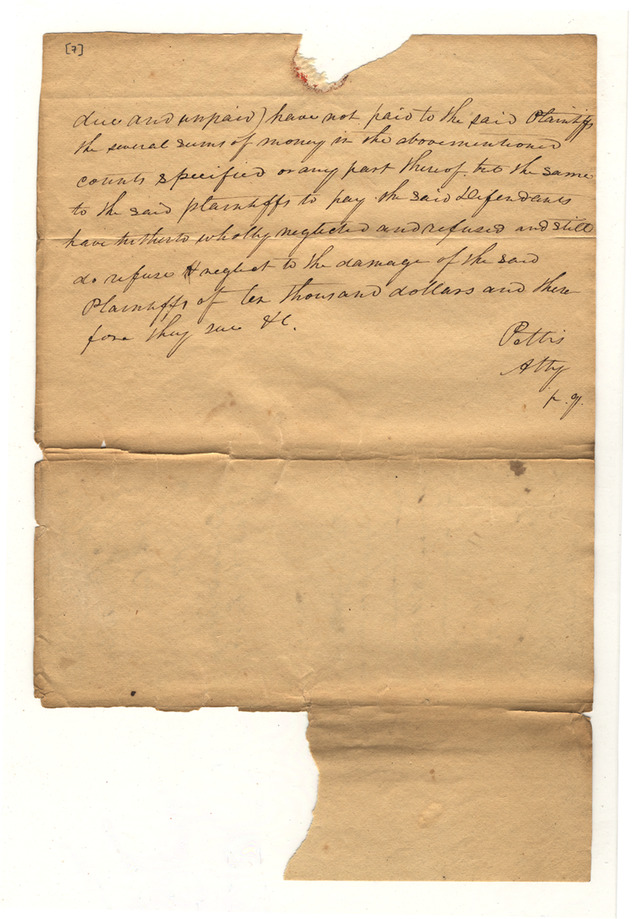 [7]
due and unpaid) have not paid to the said Plaintiffs
the several sums of money in the abovementioned
counts specified or any part thereof. but the same
to the said plaintiffs to pay the said Defendants
have hitherto wholly neglected and refused and still
do refuse & neglect to the damage of the said
Plaintiffs of ten thousand dollars and there
fore they sue &c.
Pettis
Atty
p. q.